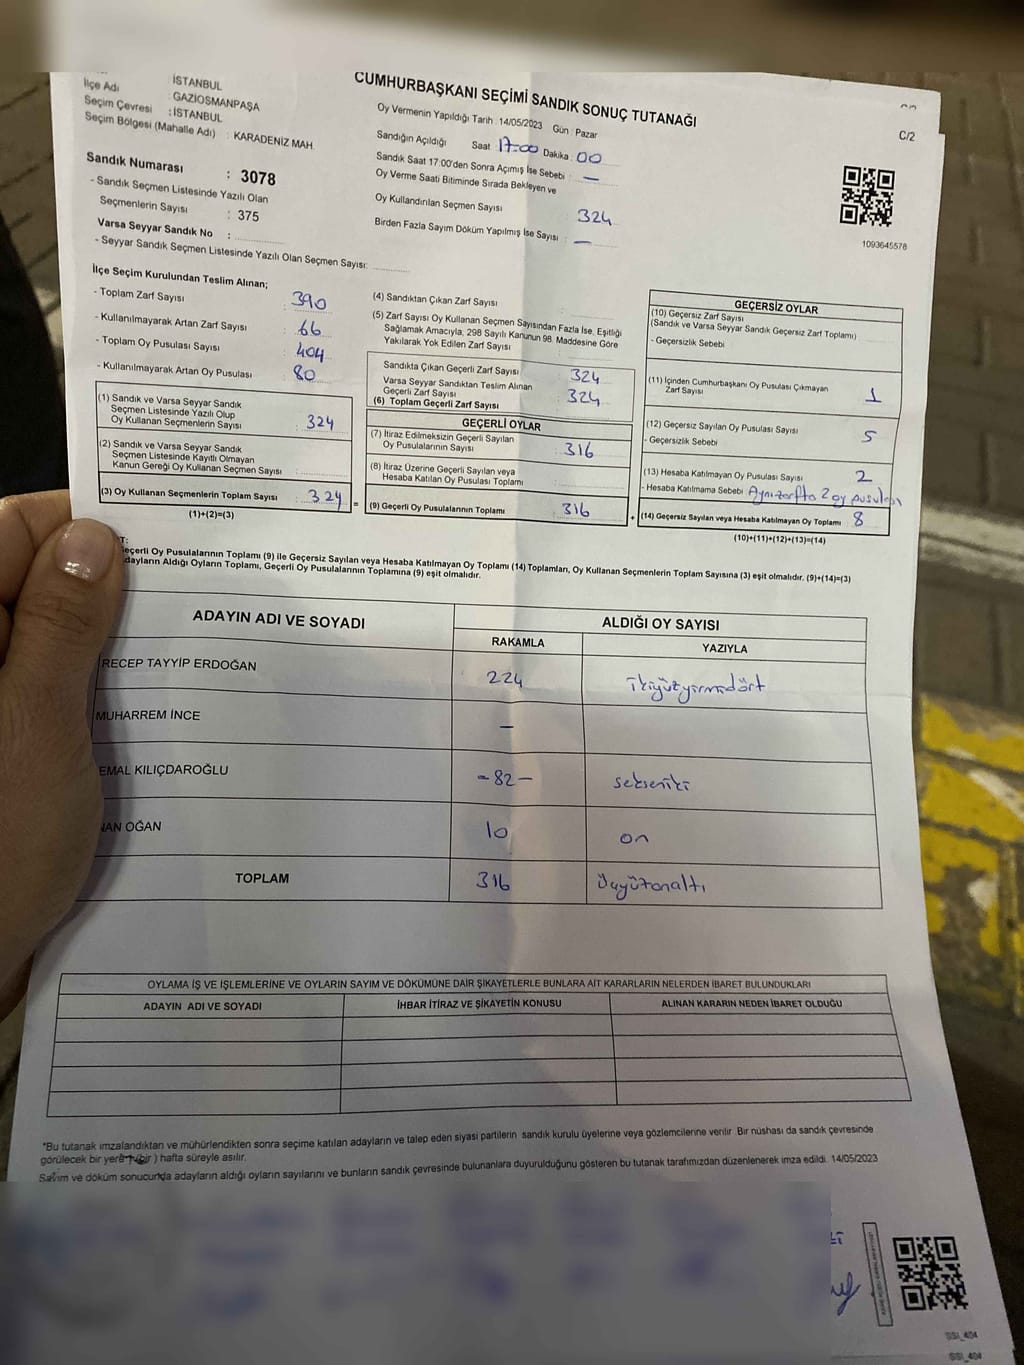 CUMHURBAŞKANI SEÇİMİ SANDIK SONUÇ TUTANAĞI
C/2
İSTANBUL
İlçe Adı : GAZİOSMANPAŞA
Seçim Çevresi : İSTANBUL
Seçim Bölgesi (Mahalle Adı) : KARADENİZ MAH.
Sandık Numarası : 3078
- Sandık Seçmen Listesinde Yazılı Olan
Seçmenlerin Sayısı : 375
Varsa Seyyar Sandık No :
- Seyyar Sandık Seçmen Listesinde Yazılı Olan Seçmen Sayısı:
Oy Vermenin Yapıldığı Tarih : 14/05/2023 Gün : Pazar
Sandığın Açıldığı Saat : 17:00 Dakika : 00
Sandık Saat 17:00'den Sonra Açımış İse Sebebi : —
Oy Verme Saati Bitiminde Sırada Bekleyen ve
Oy Kullandırılan Seçmen Sayısı : 324
Birden Fazla Sayım Döküm Yapılmış İse Sayısı : —
1093645578
İlçe Seçim Kurulundan Teslim Alınan;
- Toplam Zarf Sayısı : 390
- Kullanılmayarak Artan Zarf Sayısı : 66
- Toplam Oy Pusulası Sayısı : 404
- Kullanılmayarak Artan Oy Pusulası : 80
(1) Sandık ve Varsa Seyyar Sandık
Seçmen Listesinde Yazılı Olup
Oy Kullanan Seçmenlerin Sayısı : 324
(2) Sandık ve Varsa Seyyar Sandık
Seçmen Listesinde Kayıtlı Olmayan
Kanun Gereği Oy Kullanan Seçmen Sayısı :
(3) Oy Kullanan Seçmenlerin Toplam Sayısı : 324 =
(1)+(2)=(3)
(4) Sandıktan Çıkan Zarf Sayısı :
(5) Zarf Sayısı Oy Kullanan Seçmen Sayısından Fazla İse, Eşitliği
Sağlamak Amacıyla, 298 Sayılı Kanunun 98. Maddesine Göre
Yakılarak Yok Edilen Zarf Sayısı :
Sandıkta Çıkan Geçerli Zarf Sayısı : 324
Varsa Seyyar Sandıktan Teslim Alınan
Geçerli Zarf Sayısı : 324
(6) Toplam Geçerli Zarf Sayısı
GEÇERLİ OYLAR
(7) İtiraz Edilmeksizin Geçerli Sayılan
Oy Pusulalarının Sayısı : 316
(8) İtiraz Üzerine Geçerli Sayılan veya
Hesaba Katılan Oy Pusulası Toplamı :
(9) Geçerli Oy Pusulalarının Toplamı : 316 +
GEÇERSİZ OYLAR
(10) Geçersiz Zarf Sayısı
(Sandık ve Varsa Seyyar Sandık Geçersiz Zarf Toplamı) :
- Geçersizlik Sebebi :
(11) İçinden Cumhurbaşkanı Oy Pusulası Çıkmayan
Zarf Sayısı : 1
(12) Geçersiz Sayılan Oy Pusulası Sayısı : 5
- Geçersizlik Sebebi :
(13) Hesaba Katılmayan Oy Pusulası Sayısı : 2
- Hesaba Katılmama Sebebi : Aynı zarfta 2 oy pusulası
(14) Geçersiz Sayılan veya Hesaba Katılmayan Oy Toplamı : 8
(10)+(11)+(12)+(13)=(14)
T:
eçerli Oy Pusulalarının Toplamı (9) ile Geçersiz Sayılan veya Hesaba Katılmayan Oy Toplamı (14) Toplamları, Oy Kullanan Seçmenlerin Toplam Sayısına (3) eşit olmalıdır. (9)+(14)=(3)
dayların Aldığı Oyların Toplamı, Geçerli Oy Pusulalarının Toplamına (9) eşit olmalıdır.
ADAYIN ADI VE SOYADI
ALDIĞI OY SAYISI
RAKAMLA YAZIYLA
RECEP TAYYİP ERDOĞAN 224 ikiyüzyirmidört
MUHARREM İNCE —
EMAL KILIÇDAROĞLU - 82 — sekseniki
NAN OĞAN 10 on
TOPLAM 316 üçyüzonaltı
OYLAMA İŞ VE İŞLEMLERİNE VE OYLARIN SAYIM VE DÖKÜMÜNE DAİR ŞİKAYETLERLE BUNLARA AİT KARARLARIN NELERDEN İBARET BULUNDUKLARI
ADAYIN ADI VE SOYADI İHBAR İTİRAZ VE ŞİKAYETİN KONUSU ALINAN KARARIN NEDEN İBARET OLDUĞU
*Bu tutanak imzalandıktan ve mühürlendikten sonra seçime katılan adayların ve talep eden siyasi partilerin sandık kurulu üyelerine veya gözlemcilerine verilir. Bir nüshası da sandık çevresinde
görülecek bir yere (bir) hafta süreyle asılır.
Sayım ve döküm sonucunda adayların aldığı oyların sayılarını ve bunların sandık çevresinde bulunanlara duyurulduğunu gösteren bu tutanak tarafımızdan düzenlenerek imza edildi. 14/05/2023
SSI_404
SSI_404